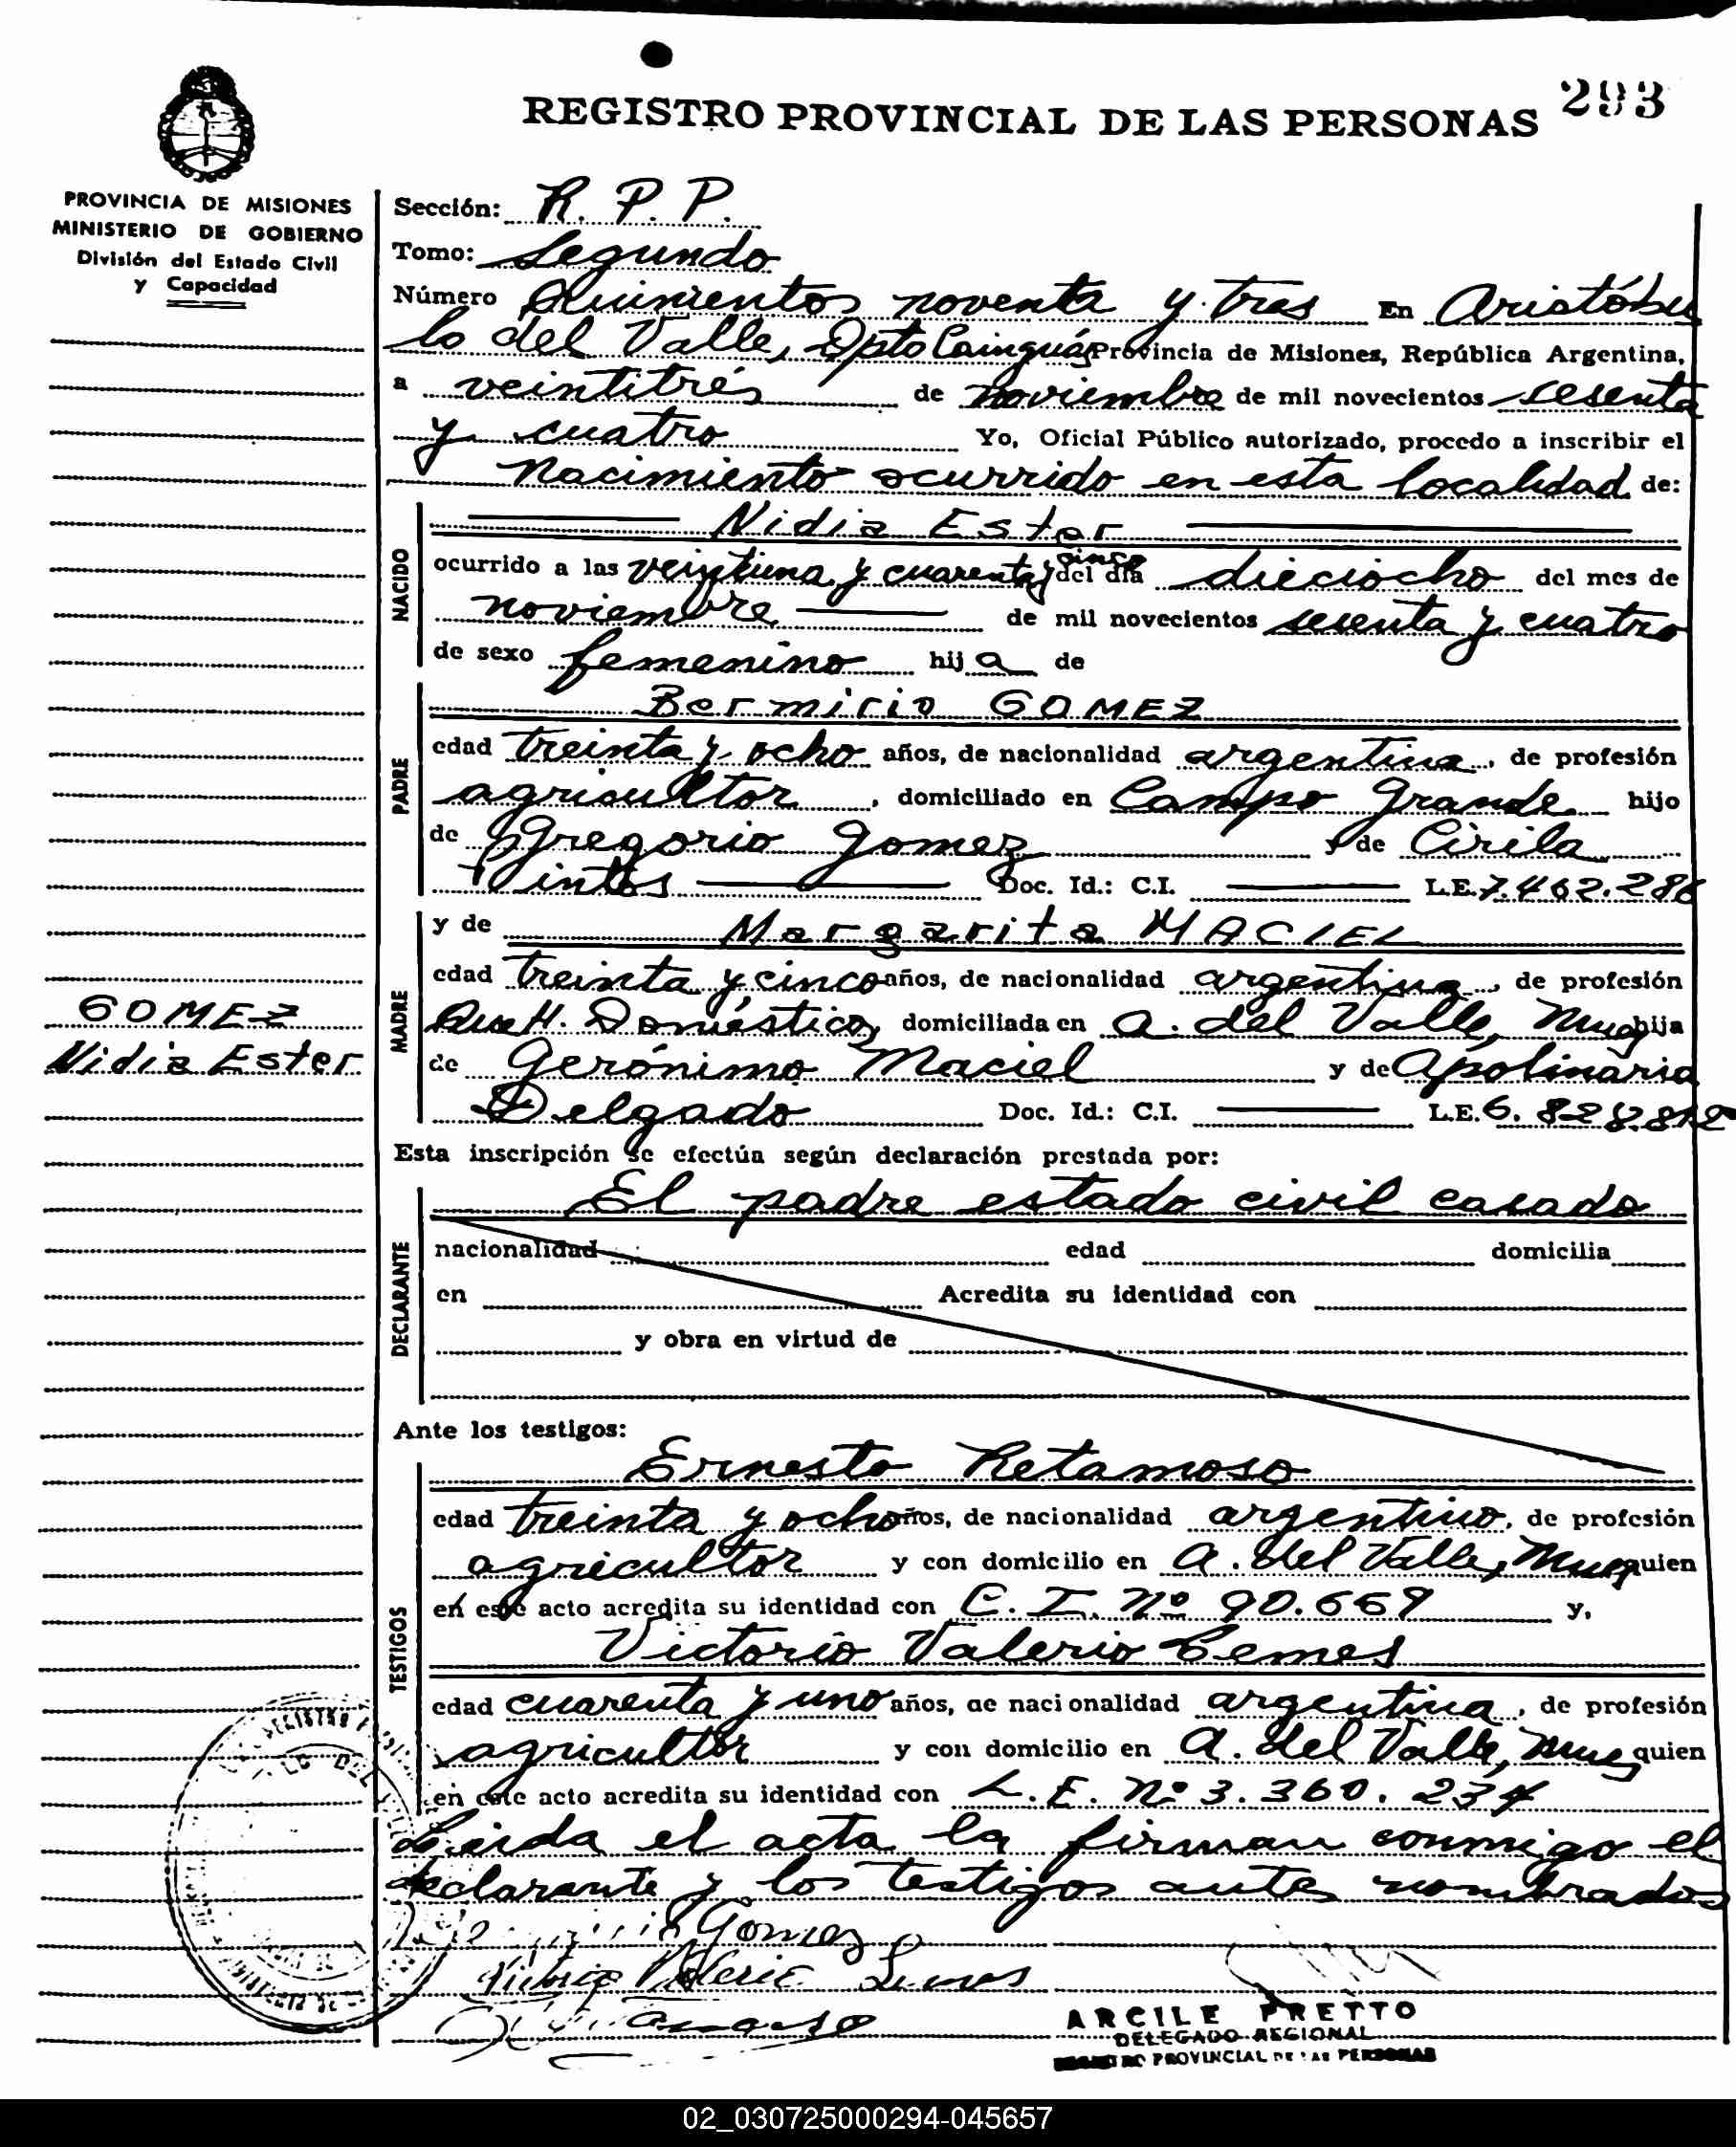 293
REGISTRO PROVINCIAL DE LAS PERSONAS
PROVINCIA DE MISIONES
MINISTERIO DE GOBIERNO
División del Estado Civil
y Capacidad
Sección: R. P. P.
Tomo: Segundo
Número Quinientos noventa y tres En Aristóbu
lo del Valle, Dpto Cainguás Provincia de Misiones, República Argentina,
a veintitrés de noviembre de mil novecientos sesenta
y cuatro Yo, Oficial Público autorizado, procedo a inscribir el
Nacimiento ocurrido en esta localidad de:
NACIDO
Nidia Ester
ocurrido a las veintiuna y cuarenta y cinco del día dieciocho del mes de
noviembre de mil novecientos sesenta y cuatro
de sexo femenino hija de
PADRE
Bermirio GOMEZ
edad treinta y ocho años, de nacionalidad argentina, de profesión
agricultor, domiciliado en Campo Grande hijo
de Gregorio Gomez y de Cirila
Pintos Doc. Id.: C.I. L.E. 7.462.286
MADRE
y de Margarita MACIEL
edad treinta y cinco años, de nacionalidad argentina, de profesión
Que H. Doméstico, domiciliada en A. del Valle, Mnes hija
de Gerónimo Maciel y de Apolinaria
Delgado Doc. Id.: C.I. L.E. 6.828.812
GOMEZ
Nidia Ester
Esta inscripción se efectúa según declaración prestada por:
DECLARANTE
El padre estado civil casado
nacionalidad edad domicilia
en Acredita su identidad con
y obra en virtud de
Ante los testigos:
TESTIGOS
Ernesto Retamoso
edad treinta y ocho años, de nacionalidad argentino, de profesión
agricultor y con domicilio en A. del Valle, Mnes quien
en este acto acredita su identidad con C. I. Nº 90.669 y,
Victorio Valerio Lemes
edad cuarenta y uno años, de nacionalidad argentina, de profesión
agricultor y con domicilio en A. del Valle, Mnes quien
en este acto acredita su identidad con L. E. Nº 3.360.234
Leida el acta la firman conmigo el
declarante y los testigos antes nombrados
Gomez
Victorio Valerio Lemes
ARCILE PRETTO
DELEGADO REGIONAL
REGISTRO PROVINCIAL DE LAS PERSONAS
02_030725000294-045657